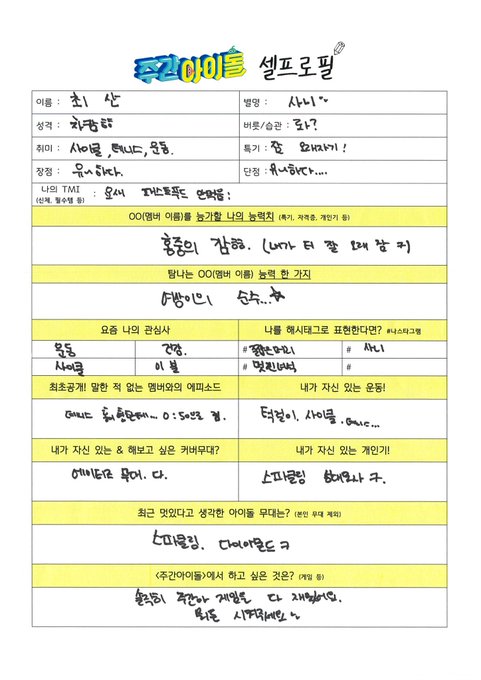 주간아이돌 셀프로필
이름 : 최 산
별명 : 사니~
성격 : 차캄ㅎㅎ
버릇/습관 : 로?
취미 : 사이클, 테니스, 운동.
특기 : 잠 오래자기!
장점 : 유니하다.
단점 : 유니하다....
나의 TMI : 요새 패스트푸드 안먹음:
(신체, 필수템 등)
OO(멤버 이름)를 능가할 나의 능력치 (특기, 자격증, 개인기 등)
홍중의 잠ㅎ. (내가 더 잘 오래 잠 ㅋ)
탐나는 OO(멤버 이름) 능력 한 가지
순수...☆
요즘 나의 관심사
나를 해시태그로 표현한다면? #나스타그램
운동 건강. # 짧은머리 # 사니
사이클 이불 # 멋진녀석 #
최초공개! 말한 적 없는 멤버와의 에피소드
내가 자신 있는 운동!
테니스 0:50으로 짐.
턱걸이, 사이클.
내가 자신 있는 & 해보고 싶은 커버무대?
내가 자신 있는 개인기!
에이티즈 무대. 다.
스파클링 성대모사 ㅋ.
최근 멋있다고 생각한 아이돌 무대는? (본인 무대 제외)
스파클링. 다이아몬드 ㅋ
<주간아이돌>에서 하고 싶은 것은? (게임 등)
솔직히 주간아 게임은 다 재밌어요.
뭐든 시켜주세요~